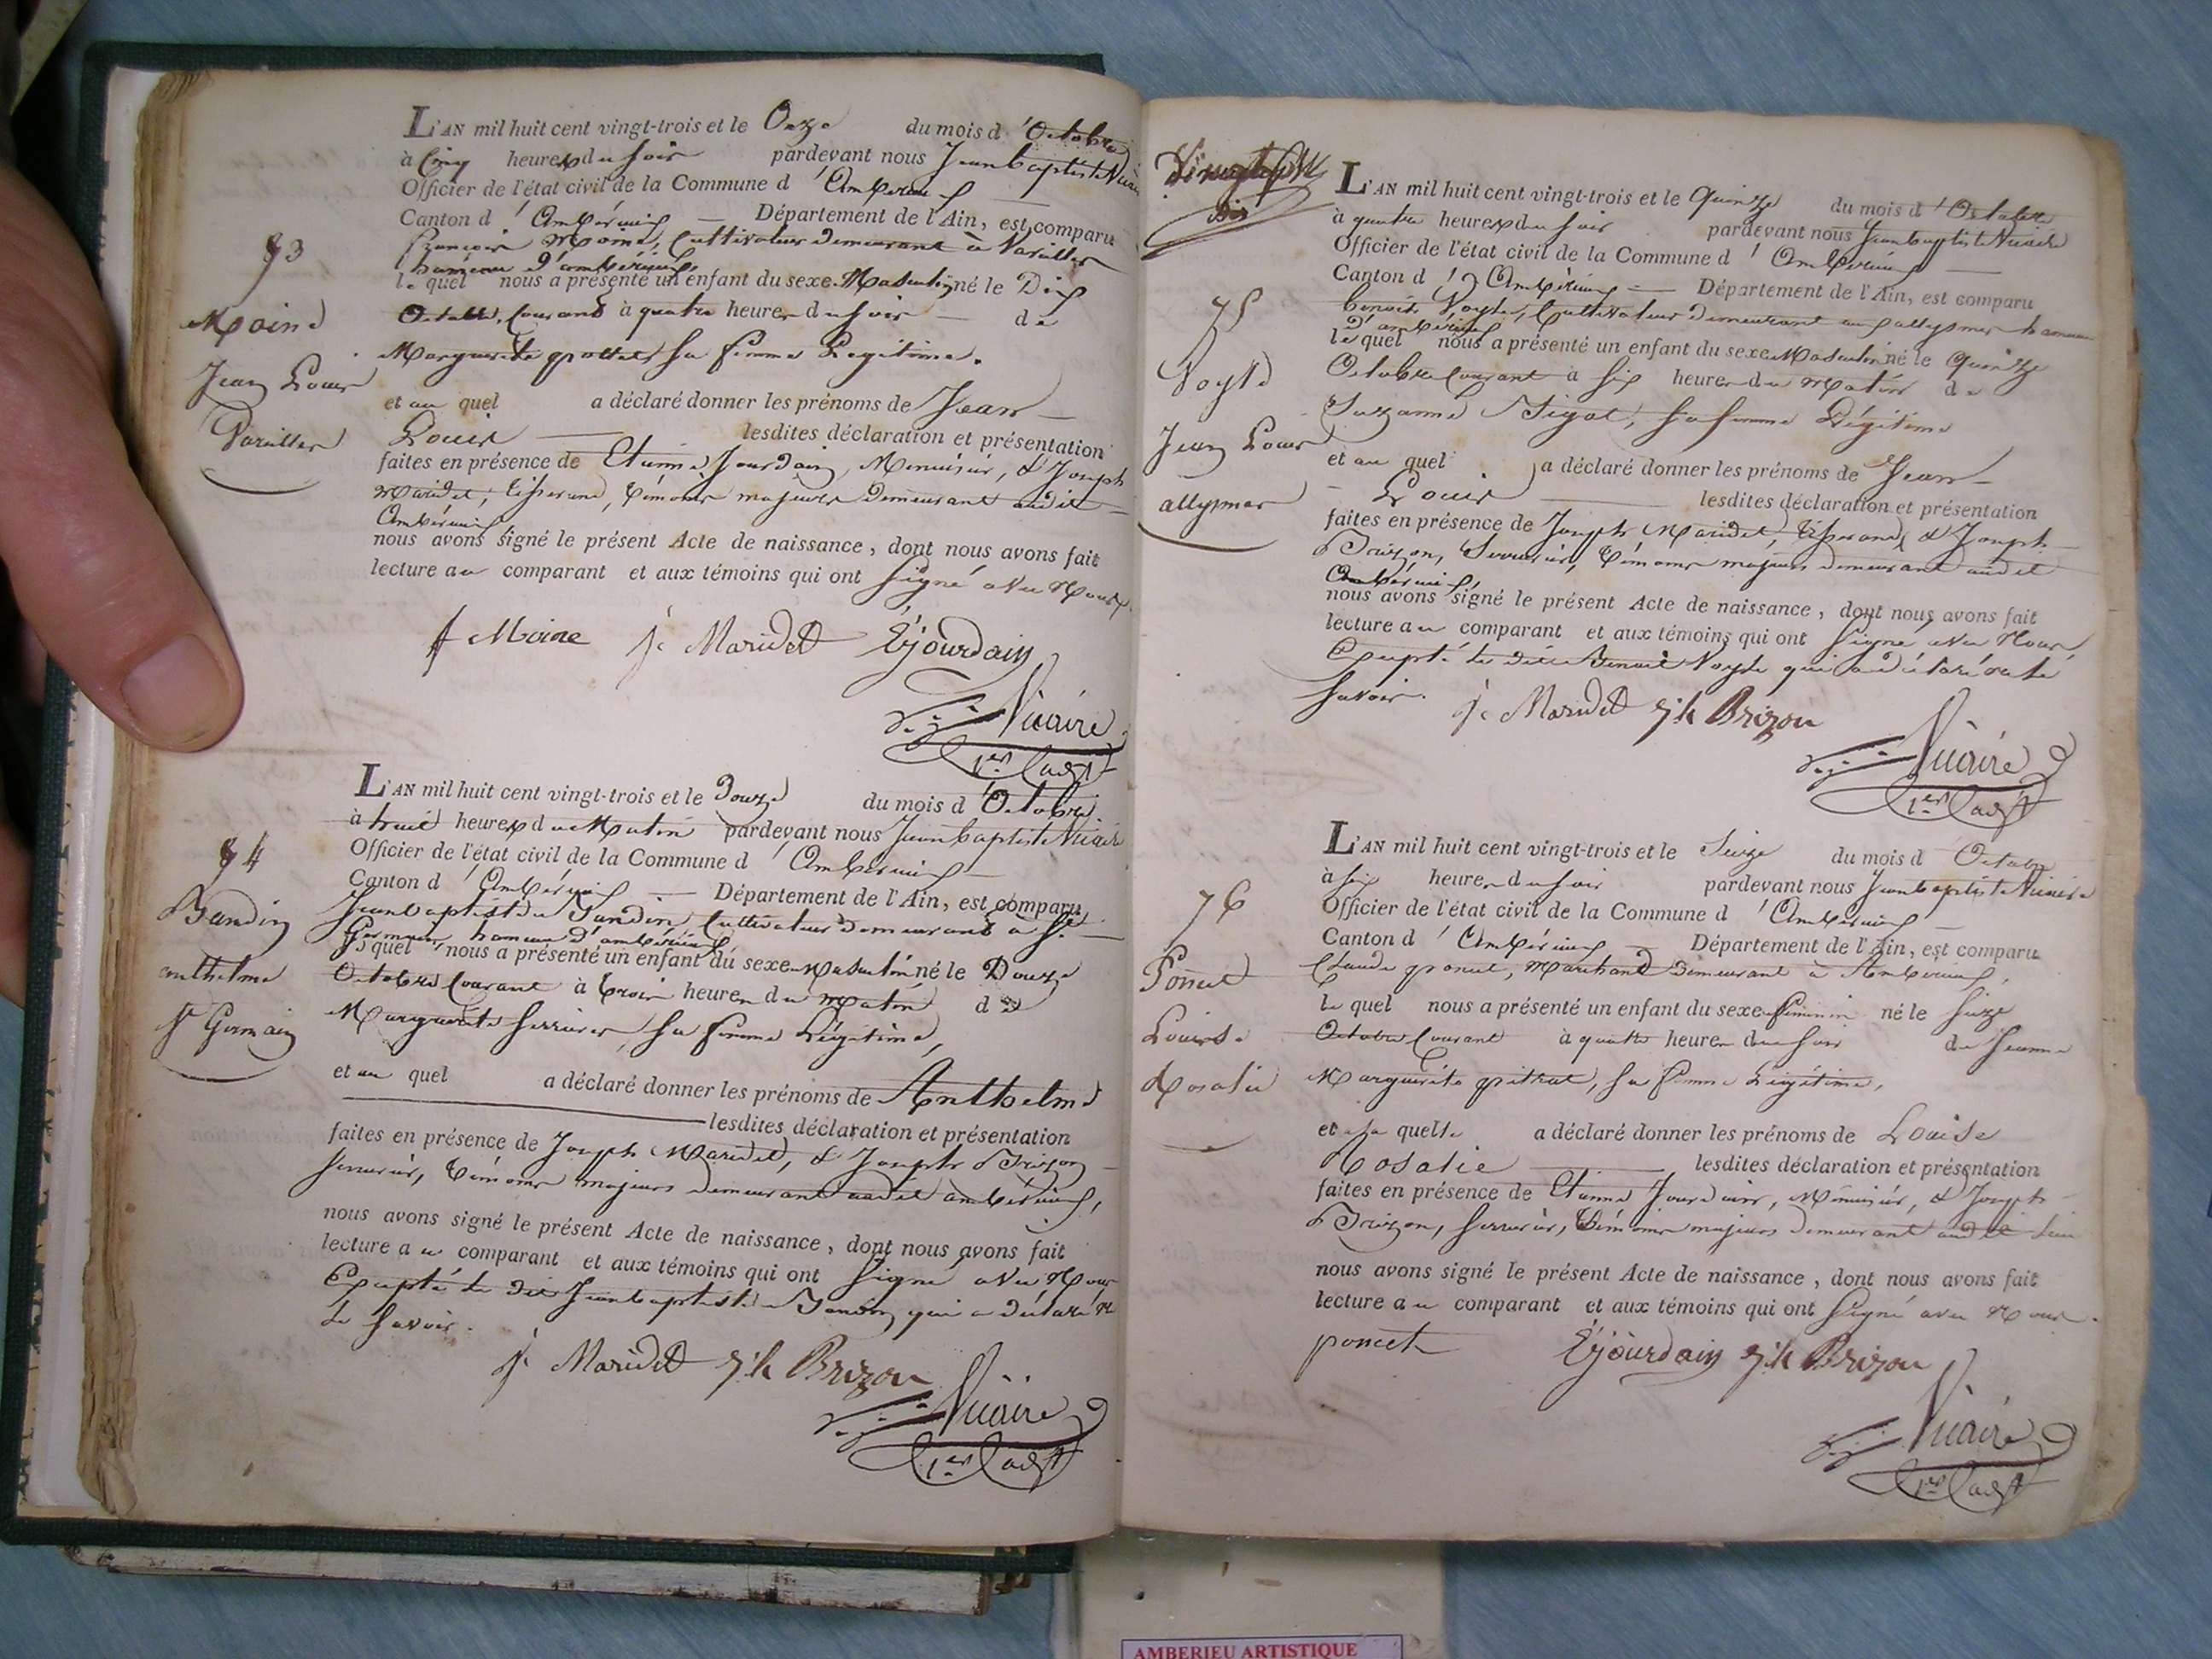 L'AN mil huit cent vingt-trois et le Onze du mois d'Octobre
à Cinq heures du soir pardevant nous Jean baptiste Vicaire
Officier de l'état civil de la Commune d'Ambérieux
Canton d'Ambérieux — Département de l'Ain, est comparu
françois Moine, Cultivateur demeurant à Vareilles
hameau d'ambérieux,
le quel nous a présenté un enfant du sexe Masculin né le Dix
Octobre Courant à quatre heures du soir — de
Marguerite sa femme Légitime.
et au quel a déclaré donner les prénoms de Jean —
Louis — lesdites déclaration et présentation
faites en présence de Etienne Jourdain, Menuisier, & Joseph
Maridet, tisserand, témoins majeurs demeurant audit
Ambérieux
nous avons signé le présent Acte de naissance, dont nous avons fait
lecture au comparant et aux témoins qui ont signé avec Nous.
73
Moine
Jean Louis
Vareilles
f Moine J. Maridet E Jourdain
Vicaire
1er adjt
L'AN mil huit cent vingt-trois et le Douze du mois d'Octobre
à huit heures du Matin pardevant nous Jean baptiste Vicaire
Officier de l'état civil de la Commune d'Ambérieux
Canton d'Ambérieux — Département de l'Ain, est comparu
Jean baptiste Cultivateur demeurant à St
Germain, hameau d'ambérieux,
le quel nous a présenté un enfant du sexe Masculin né le Douze
Octobre Courant à trois heures du matin de
Marguerite sa femme Légitime,
et au quel a déclaré donner les prénoms de Anthelme
— lesdites déclaration et présentation
faites en présence de Joseph Maridet, & Joseph Brizon
serrurier, témoins majeurs demeurant audit ambérieux,
nous avons signé le présent Acte de naissance, dont nous avons fait
lecture au comparant et aux témoins qui ont signé avec Nous
Excepté le dit Jean baptiste qui a déclaré ne
le savoir.
74
anthelme
St Germain
J. Maridet Jh Brizon
Vicaire
1er adjt
L'AN mil huit cent vingt-trois et le Quinze du mois d'Octobre
à quatre heures du soir pardevant nous Jean baptiste Vicaire
Officier de l'état civil de la Commune d'Ambérieux
Canton d'Ambérieux — Département de l'Ain, est comparu
benoit Cultivateur demeurant au hameau
d'ambérieux
le quel nous a présenté un enfant du sexe Masculin né le Quinze
Octobre Courant à six heures du Matin de
Suzanne sa femme Légitime
et au quel a déclaré donner les prénoms de Jean —
Louis — lesdites déclaration et présentation
faites en présence de Joseph Maridet, tisserand, & Joseph
Brizon, Serrurier, témoins majeurs demeurant audit
Ambérieux,
nous avons signé le présent Acte de naissance, dont nous avons fait
lecture au comparant et aux témoins qui ont signé avec Nous,
Excepté le dit Benoit qui a déclaré ne le
savoir.
75
Jean Louis
allymes
J. Maridet Jh Brizon
Vicaire
1er adjt
L'AN mil huit cent vingt-trois et le Seize du mois d Octobre
à six heures du soir pardevant nous Jean baptiste Vicaire
Officier de l'état civil de la Commune d'Ambérieux
Canton d'Ambérieux — Département de l'Ain, est comparu
Claude poncet, Marchand demeurant à Ambérieux,
le quel nous a présenté un enfant du sexe feminin né le Seize
Octobre Courant à quatre heures du soir de Jeanne
Marguerite sa femme Légitime,
et a la quelle a déclaré donner les prénoms de Louise
Rosalie — lesdites déclaration et présentation
faites en présence de Etienne Jourdain, Menuisier, & Joseph
Brizon, serrurier, témoins majeurs demeurant audit lieu
nous avons signé le présent Acte de naissance, dont nous avons fait
lecture au comparant et aux témoins qui ont Signé avec Nous.
76
Poncet
Louise
Rosalie
poncet E Jourdain Jh Brizon
Vicaire
1er adjt
AMBERIEU ARTISTIQUE